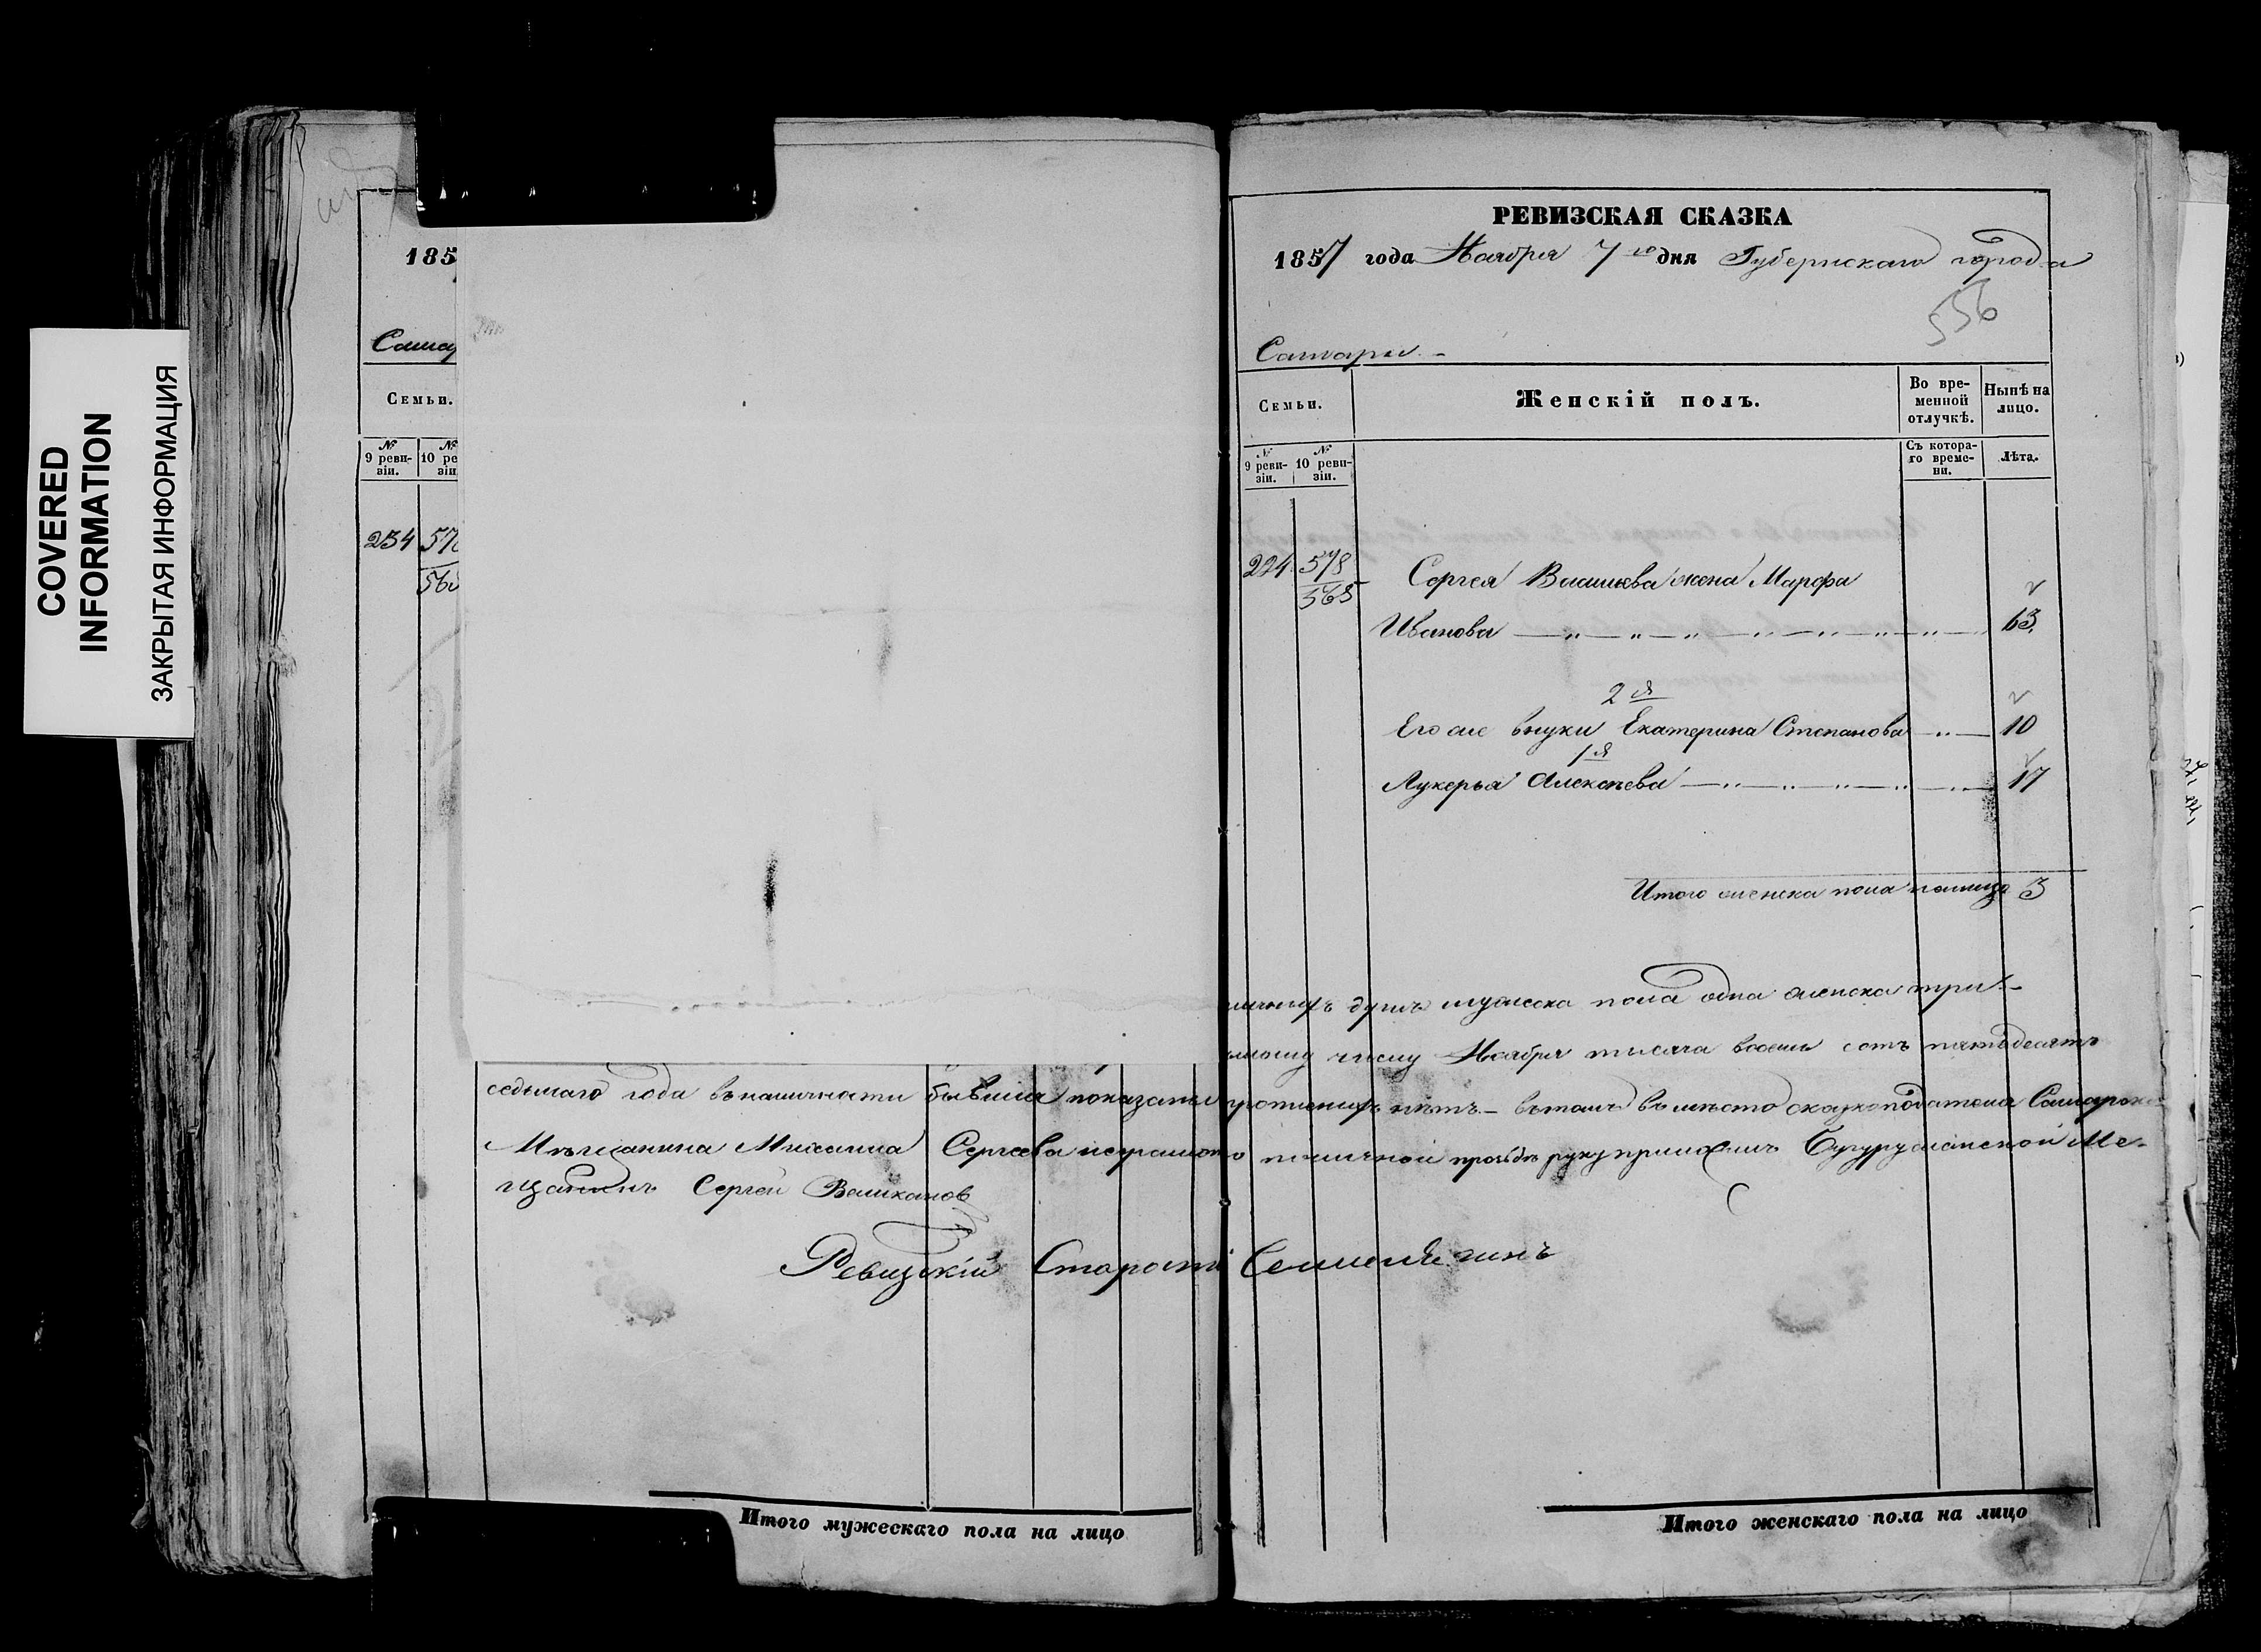 COVERED
INFORMATION
ЗАКРЫТАЯ ИНФОРМАЦИЯ
185
Самар
Семьи.
№ 9 ревизіи.
№ 10 ре
зіи
234
57
56
РЕВИЗСКАЯ СКАЗКА
1857 года Ноября 7го дня Губернскаго города
556
Самары. -
Семьи.
Женскій полъ.
Во временной отлучкѣ.
Нынѣ на лицо.
№ 9 ревизіи.
№ 10 ревизіи.
Съ котораго времени.
Лѣта.
224 578
565
Сергея жена Марфа
Иванова 63.
2я
Его же внуки Екатерина Степанова 10
1я
Лукерья Алексѣева 17
Итого женска пола налицо 3
душъ мужеска пола одна женска три
числу Ноября тысяча восемь сотъ пятьдесятъ
седьмаго года въ наличности бывшия показаны нѣтъ - въ томъ вместо сказкоподателя Самарска
Мѣщанина Михаила Сергеева личной прозьбе руку приложилъ Бугурусланской Ме-
щанинъ Сергей
Ревизскій Староста
Итого мужескаго пола на лицо
Итого женскаго пола на лицо